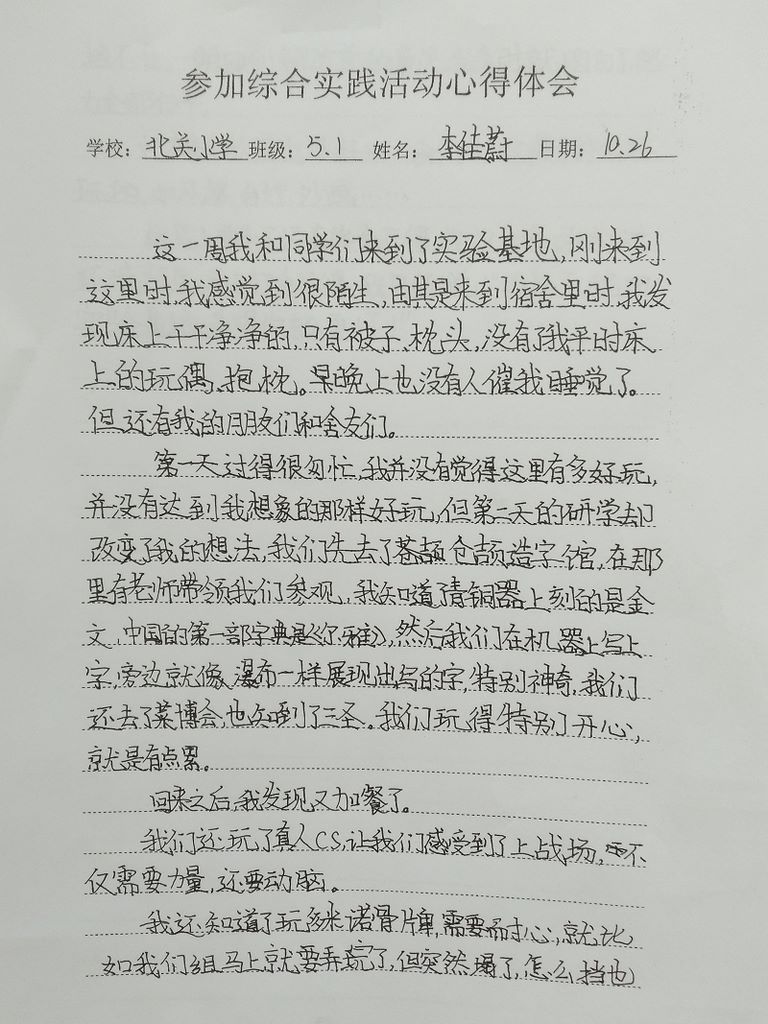 参加综合实践活动心得体会
学校：北关小学 班级：5.1 姓名：李佳蔚 日期：10.26
这一周我和同学们来到了实验基地,刚来到
这里时,我感觉到很陌生,由其是来到宿舍里时,我发
现床上干干净净的,只有被子、枕头,没有了我平时床
上的玩偶、抱枕。早晚上也没有人催我睡觉了。
但还有我的朋友们和舍友们。
第一天过得很匆忙,我并没有觉得这里有多好玩,
并没有达到我想象的那样好玩,但第二天的研学却
改变了我的想法,我们先去了苍颉仓颉造字馆,在那
里有老师带领我们参观,我知道了青铜器上刻的是金
文,中国的第一部字典是《尔雅》,然后我们在机器上写上
字,旁边就像瀑布一样展现出写的字,特别神奇,我们
还去了菜博会,也知到了三圣。我们玩得特别开心,
就是有点累。
回来之后,我发现又加餐了。
我们还玩了真人CS,让我们感受到了上战场,不
仅需要力量,还要动脑。
我还知道了玩多米诺骨牌,需要耐心,就比
如我们组马上就要弄完了,但突然塌了,怎么挡也